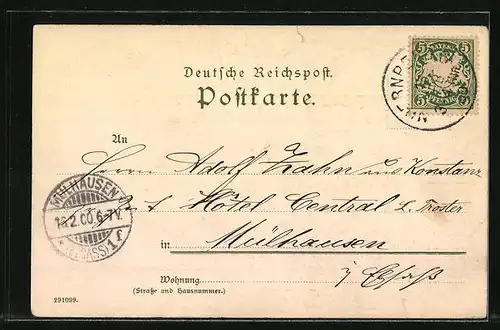 BAYERN
5 5
PFENNIG
NUERNBERG
Deutsche Reichspost.
Postkarte.
An
Herrn Adolf Zahn aus Konstanz
Hôtel Central
in Mülhausen
i/ Elsaß
MÜLHAUSEN
13.2.00.6-7V.
(ELSASS)1 f
Wohnung
(Straße und Hausnummer.)
291099.